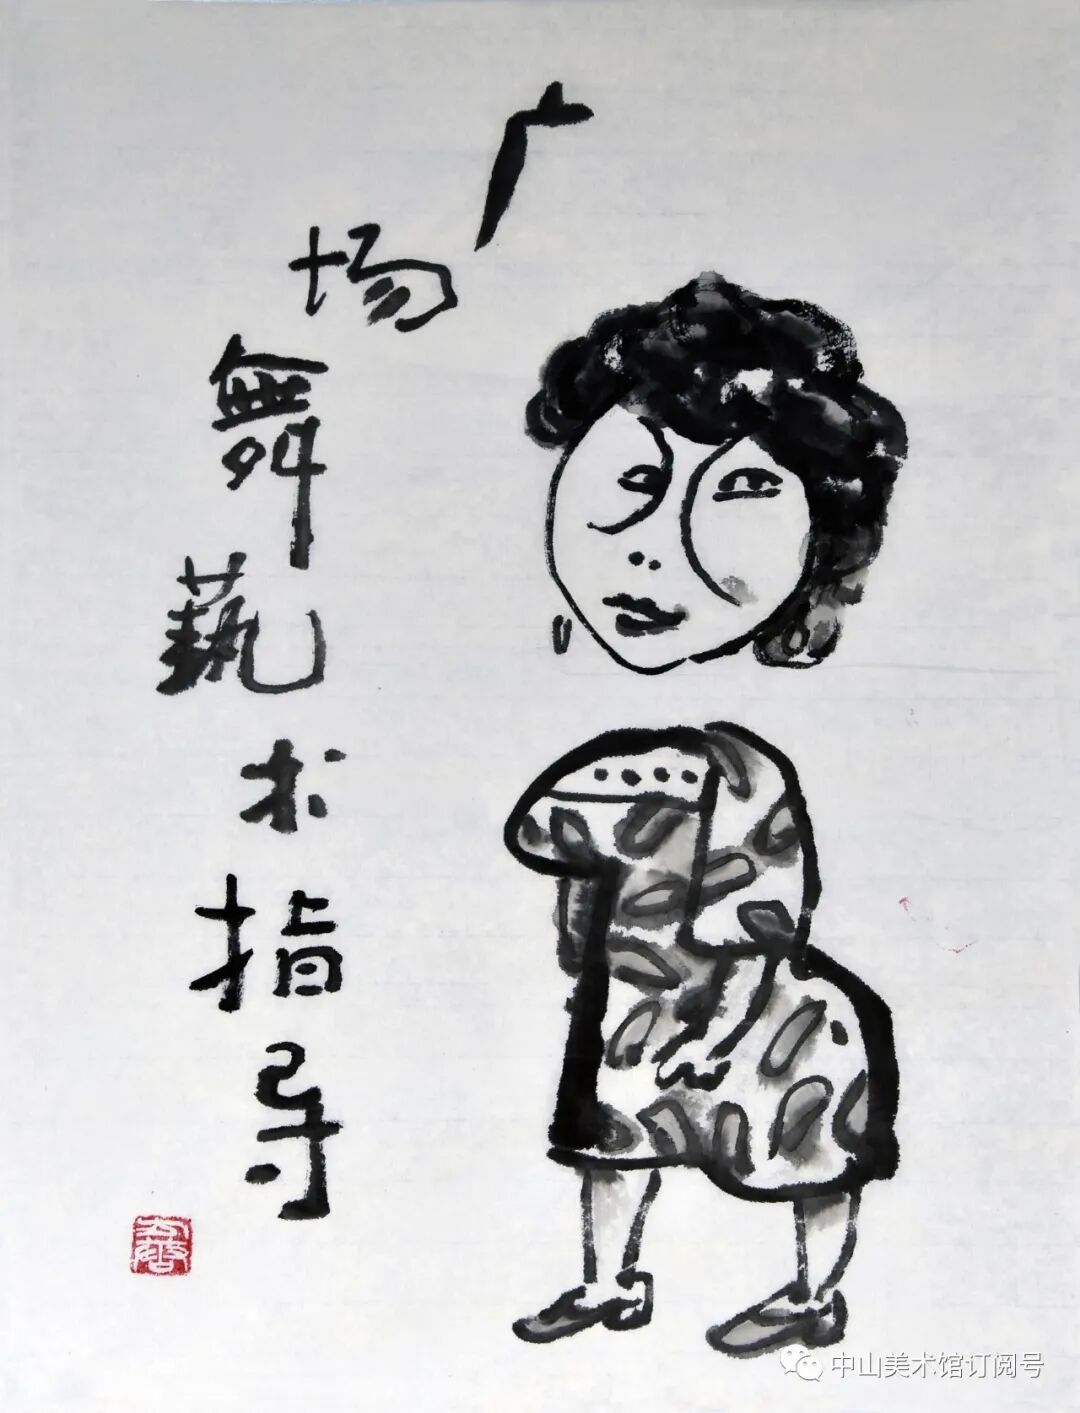 广场舞藝术指导
中山美术馆订阅号